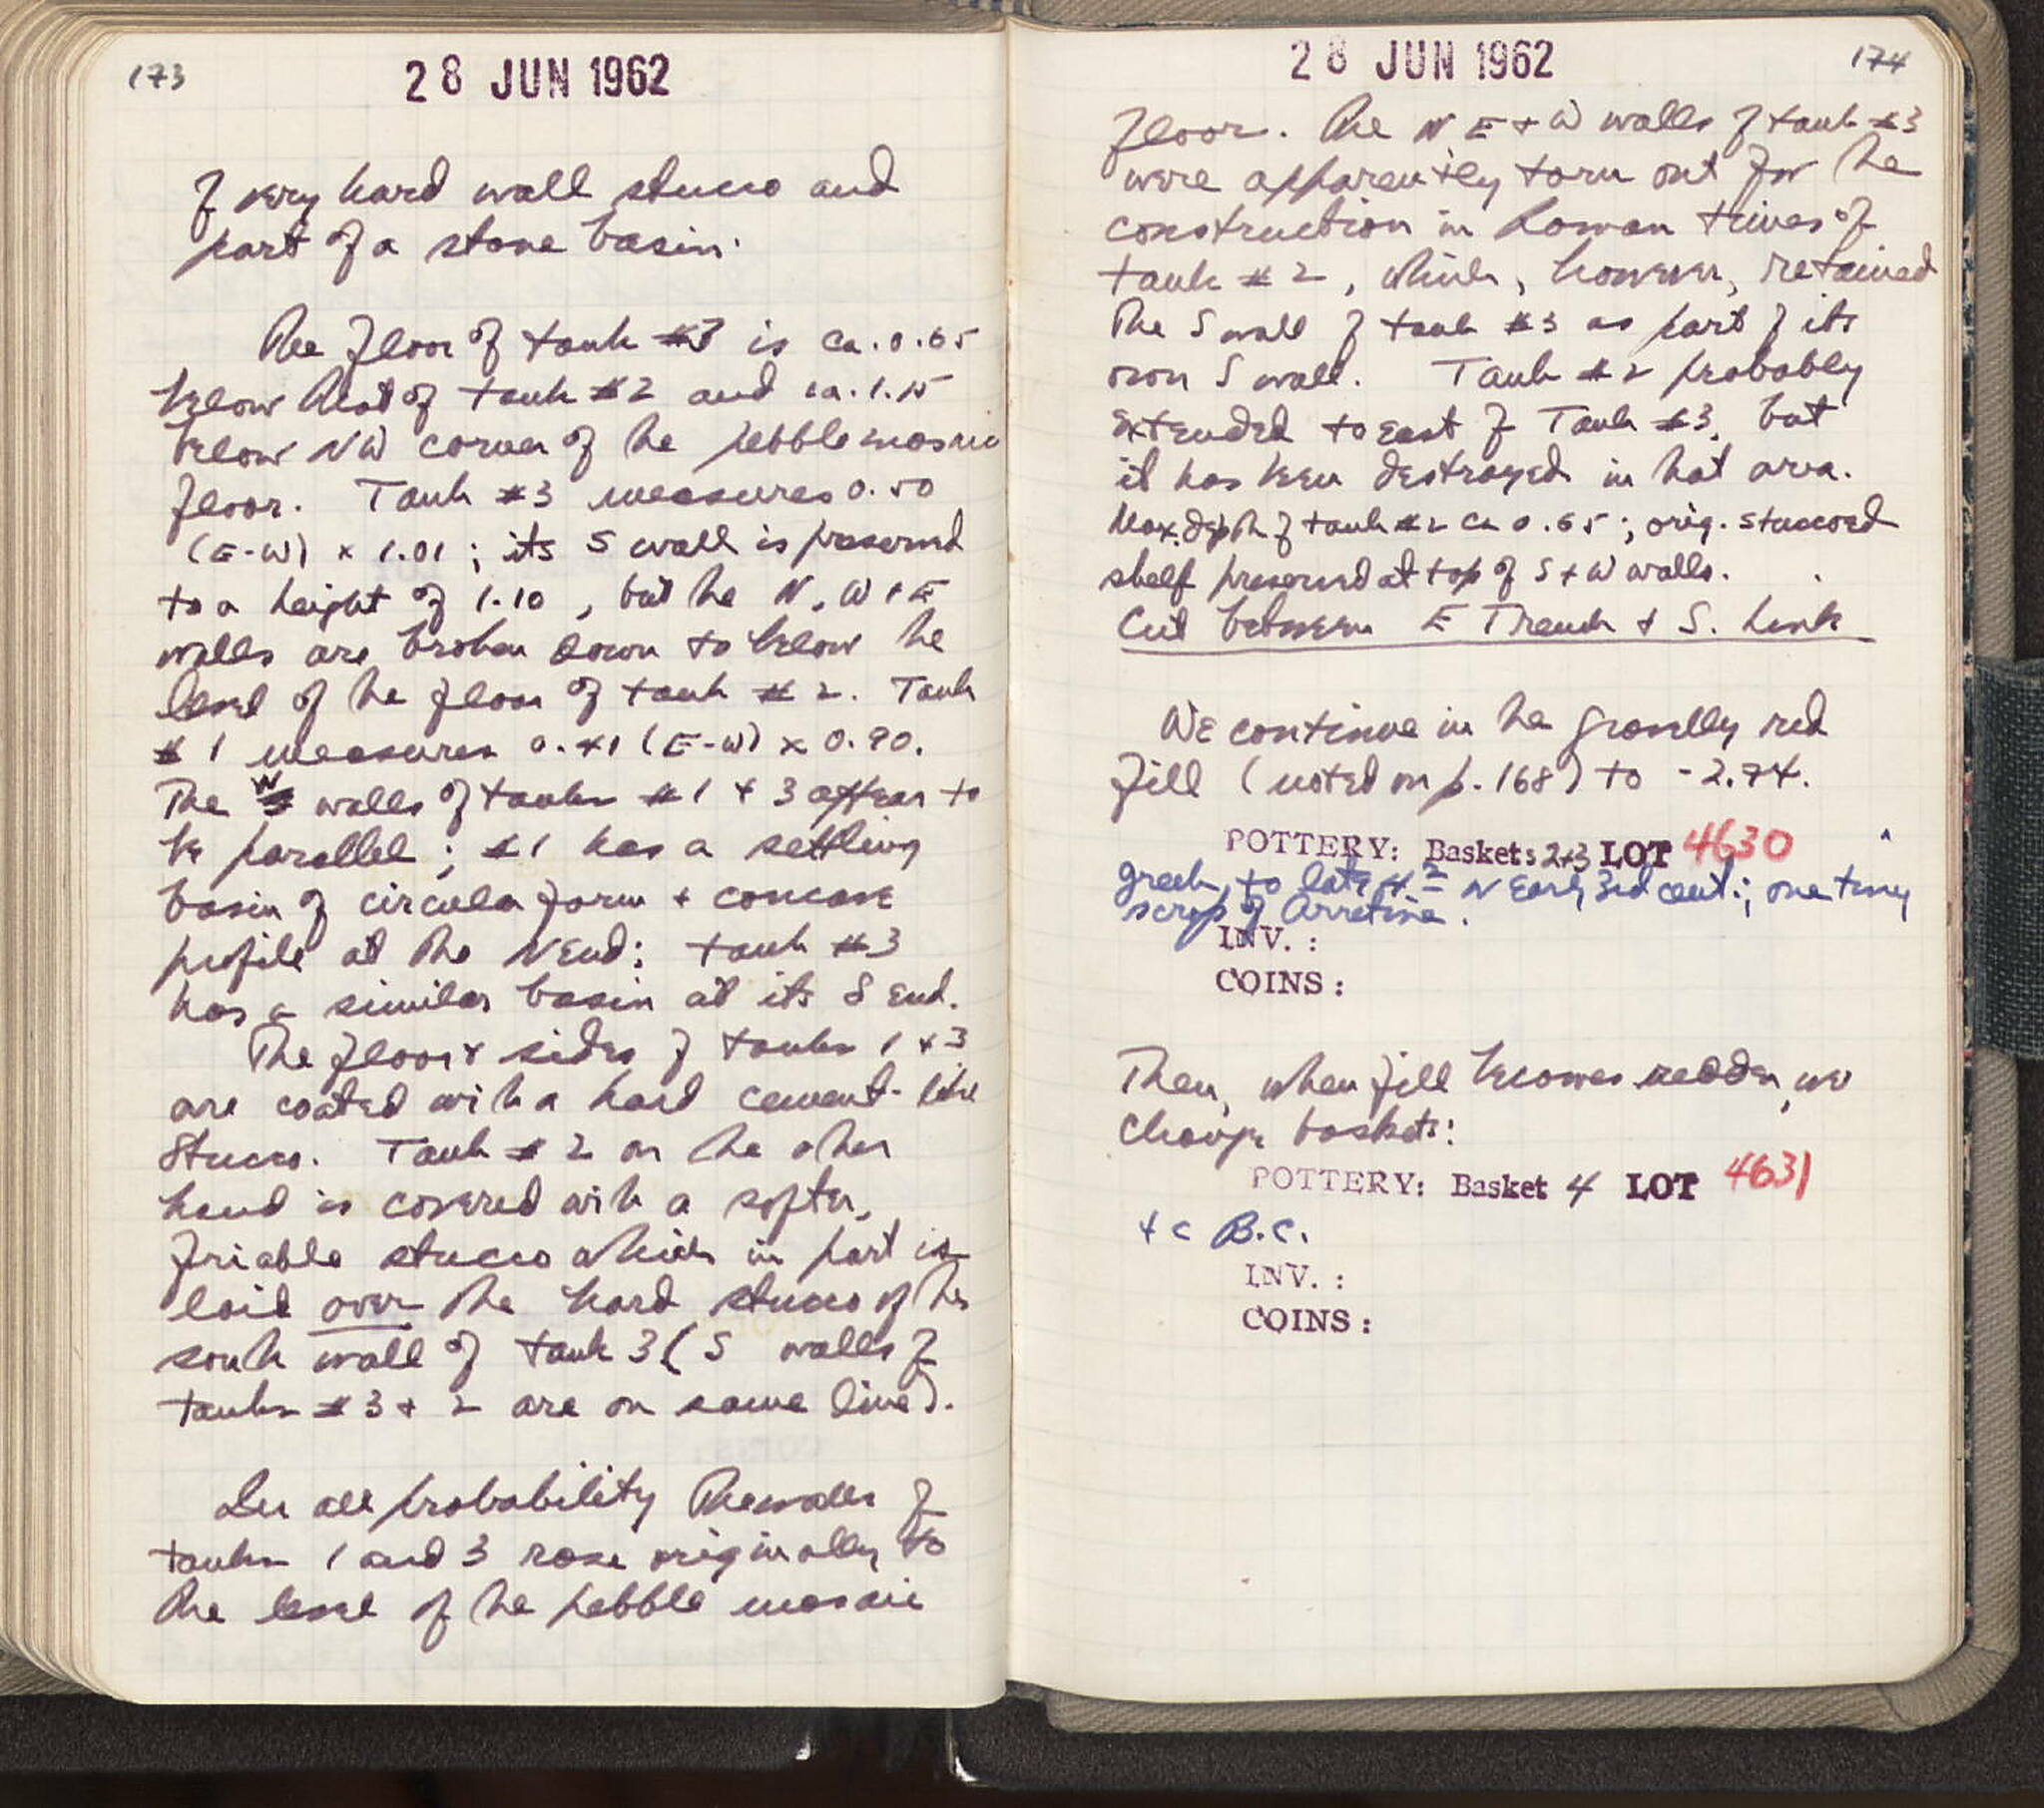 173
28 JUN 1962
of very hard wall stucco and
part of a stone basin.
The floor of tank #3 is ca. 0.65
below that of tank #2 and ca. 1.15
below NW corner of the pebble mosaic
floor. Tank #3 measures 0.50
(E-W) x 1.01; its S wall is preserved
to a height of 1.10, but the N, W + E
walls are broken down to below the
level of the floor of tank #2. Tank
#1 measures 0.41 (E-W) x 0.90.
The W walls of tanks #1 + 3 appear to
be parallel; #1 has a settling
basin of circular form + concave
profile at the N end; tank #3
has a similar basin at its S end.
The floor + sides of tanks 1 + 3
are coated with a hard cement-like
stucco. Tank #2 on the other
hand is covered with a softer,
friable stucco which in part is
laid over the hard stucco of the
south wall of tank 3 (S walls of
tanks #3 + 2 are on same line).
In all probability the walls of
tanks 1 and 3 rose originally to
the level of the pebble mosaic
28 JUN 1962
174
floor. The N E + W walls of tank #3
were apparently torn out for the
construction in Roman times of
tank #2, which, however, retained
the S wall of tank #3 as part of its
own S wall. Tank #2 probably
extended to east of Tank #3, but
it has been destroyed in that area.
Max. depth of tank #2 ca 0.65; orig. stuccoed
shelf preserved at top of S + W walls.
Cut between E Trench + S. Sink
We continue in the gravelly red
fill (noted on p. 168) to -2.74.
POTTERY: Baskets 2+3 LOT 4630
Greek, to late 4th or early 3rd cent.; one tiny
scrap of Arretine.
INV. :
COINS :
Then, when fill becomes redder, we
change baskets:
POTTERY: Basket 4 LOT 4631
4 c B.C.
INV. :
COINS :